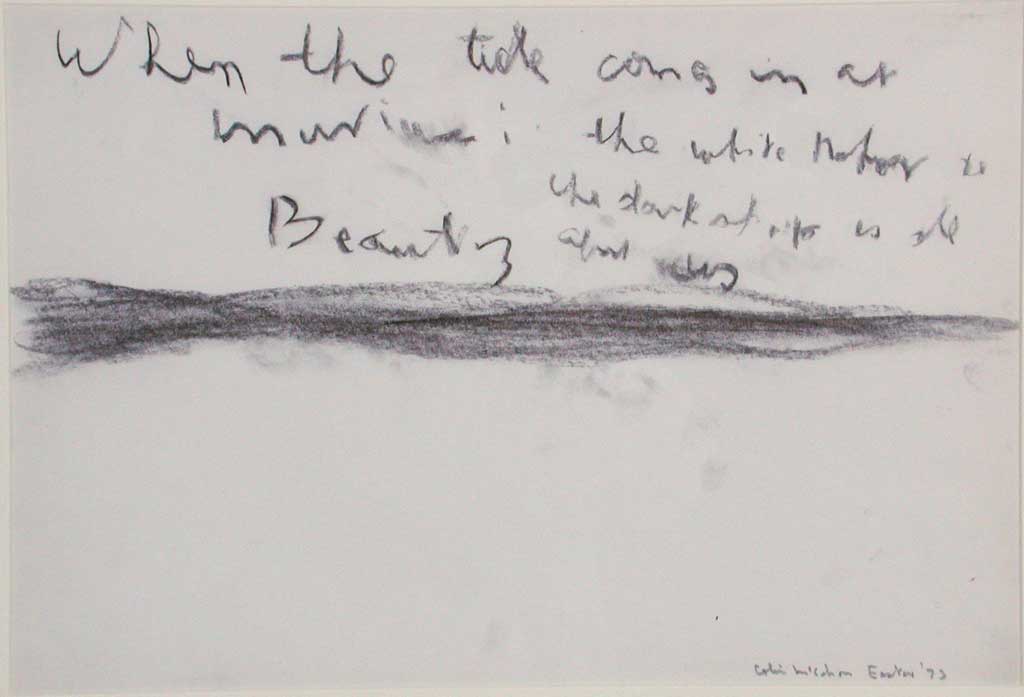 When the tide comes in at
muriwai : the white
the dark strip is all
Beauty about
Colin McCahon Easter '73